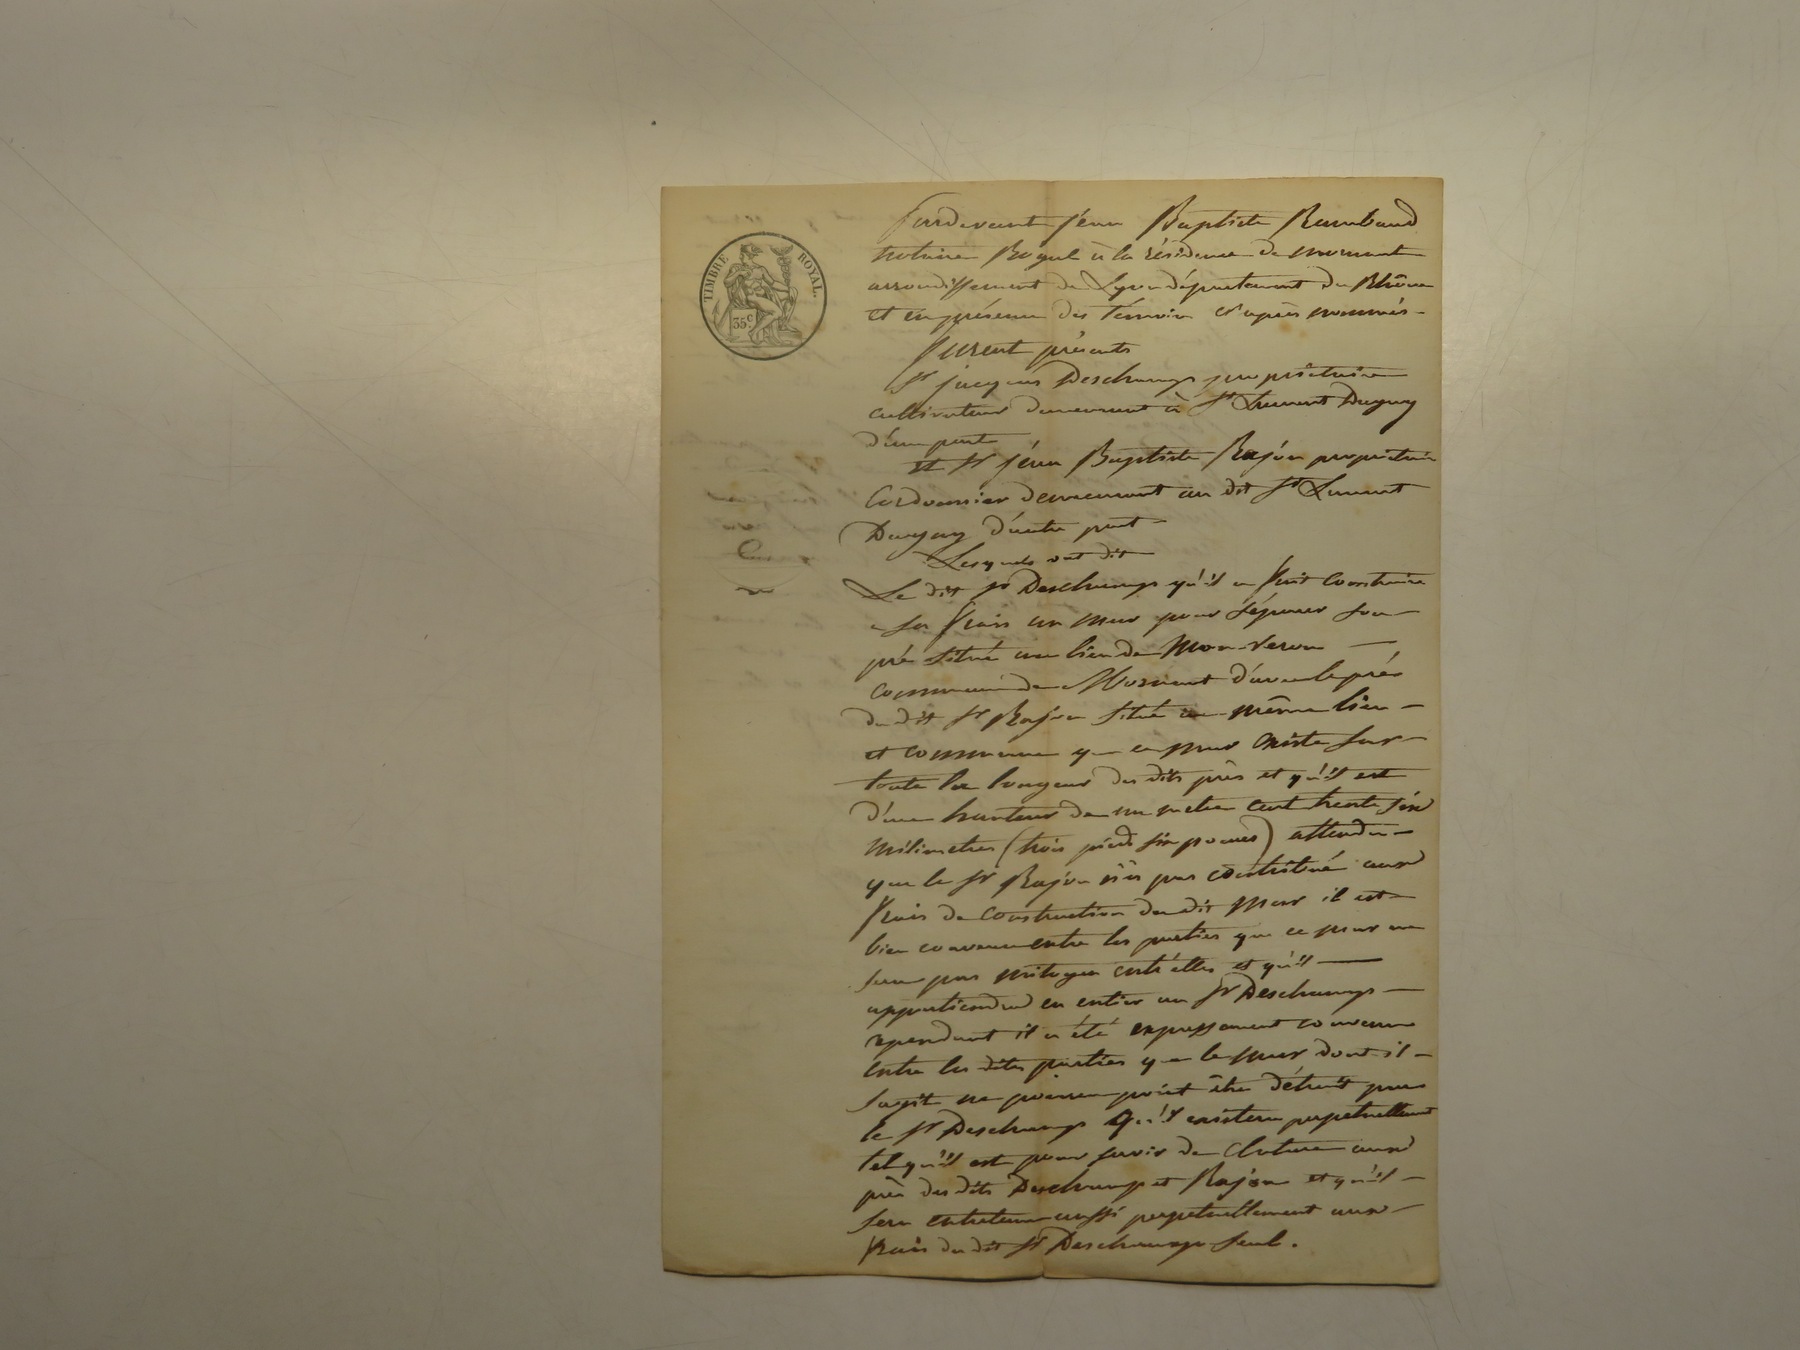 TIMBRE ROYAL.
35c
Pardevant jean Baptiste Rambaud
notaire Royal à la résidence de mornant
arrondissement de Lyon département du Rhône
et en présence des témoin ci après nommés -
furent présents
Sr jacques Deschamps propriétaire
cultivateur demeurant à St Laurent Dagny
d'une part
et Sr jean Baptiste Rajon propriétaire
Cordonnier demeurant au dit St Laurent
Dagny d'autre part -
Lesquels ont dit
Le dit Sr Deschamps qu'il a fait construire
a ses frais un mur pour séparer son -
pré situé au lieu de
commune de Mornant d'avec le pré
du dit Sr Rajon situé au même lieu -
et commune que ce mur existe sur -
toute la longeur des dits près et qu'il est
d'une hauteur de un metre cent trente six
milimetres (trois pieds six pouces) attendu -
que le Sr Rajon n'a pas contribué aux
frais de construction du dit mur il est -
bien convenu entre les parties que ce mur ne
sera pas mitoyen entr'elles et qu'il -
appartiendra en entier au Sr Deschamps -
cependant il a été expressement convenu
entre les dites parties que le mur dont il -
sagit ne pourra point être détruit par
le Sr Deschamps qu'il existera perpetuellement
tel qu'il est pour servir de cloture aux
près des dits Deschamps et Rajon et qu'il -
sera entretenu aussi perpetuellement aux -
frais du dit Sr Deschamps seul.